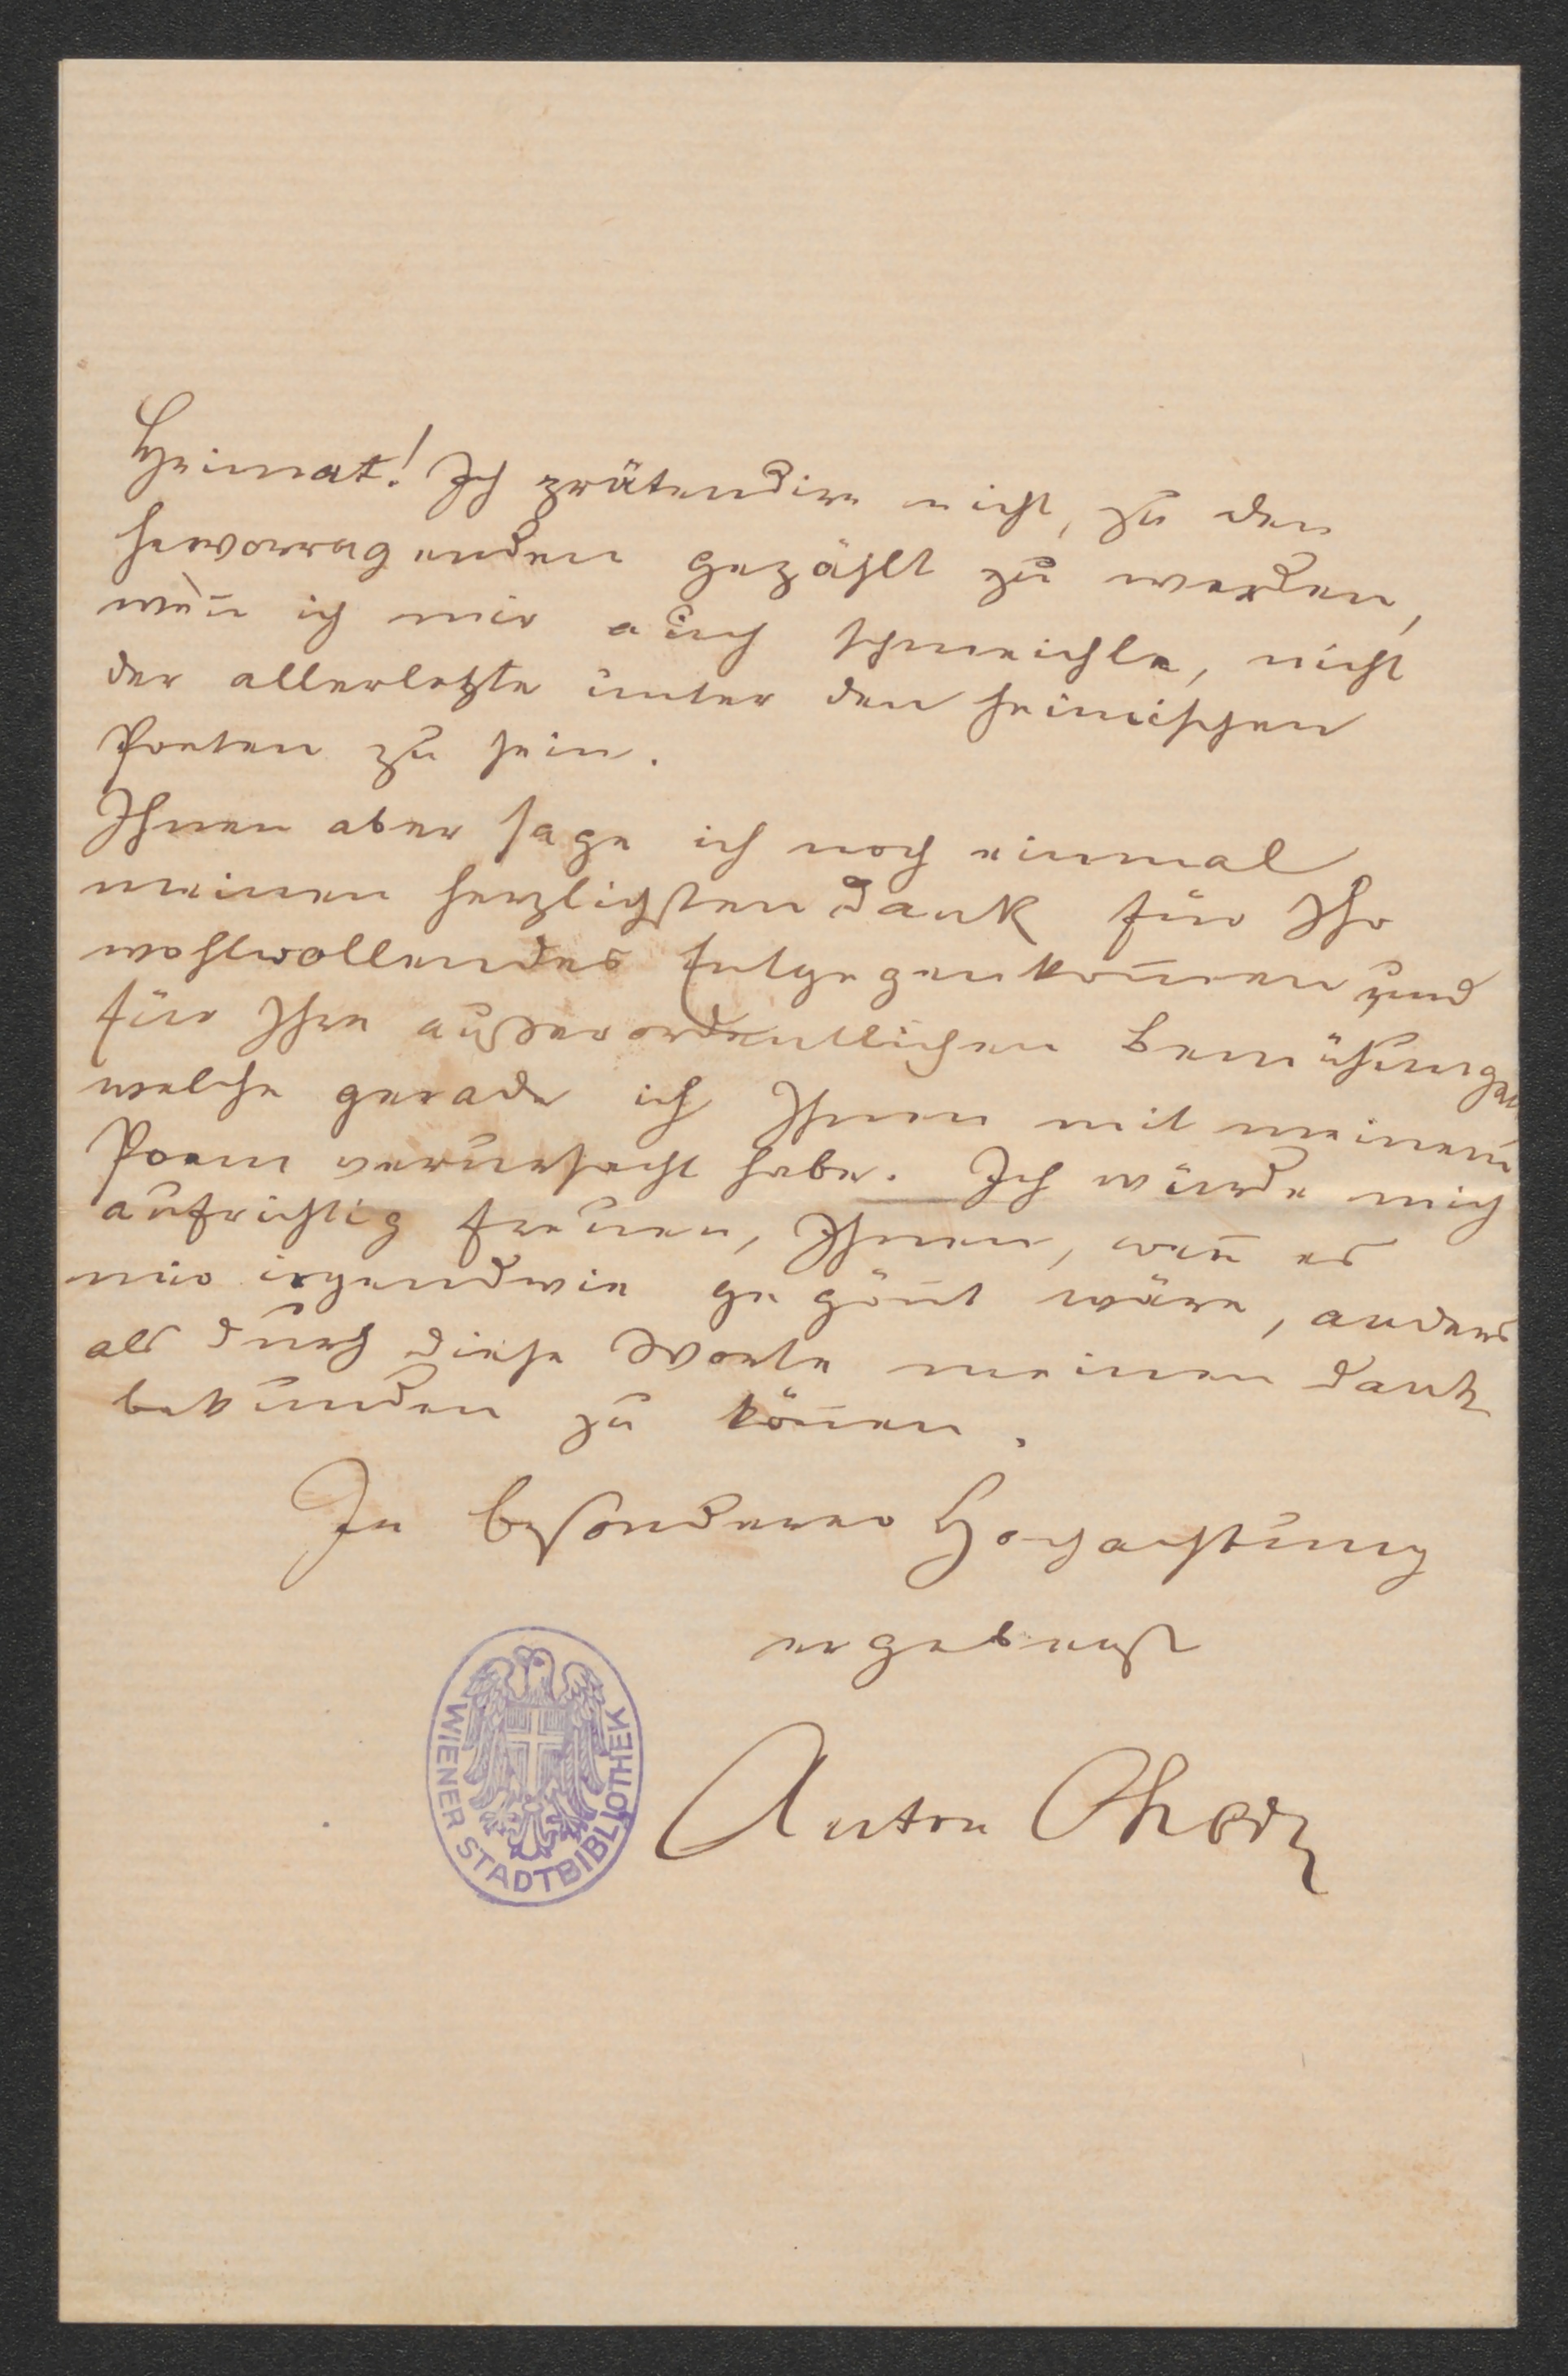 Heimat! Ich prätendire nicht, zu den
hervorragenden gezählt zu werden,
weñ ich mir auch schmeichle, nicht
der allerletzte unter den heimischen
Poeten zu sein.
Ihnen aber sage ich noch einmal
meinen herzlichsten Dank für Ihr
wohlwollendes Entgegenkom̄en und
für Ihre außerordentlichen Bemühungen
welche gerade ich Ihnen mit meinem
Poem verursacht habe. Ich würde mich
aufrichtig freuen, Ihnen, weñ es
mir irgendwie gegöñt wäre, anders
als durch diese Worte meinen Dank
bekunden zu köñen.
In besonderer Hochachtung
ergebenst
Anton Ohorn
WIENER STADTBIBLIOTHEK